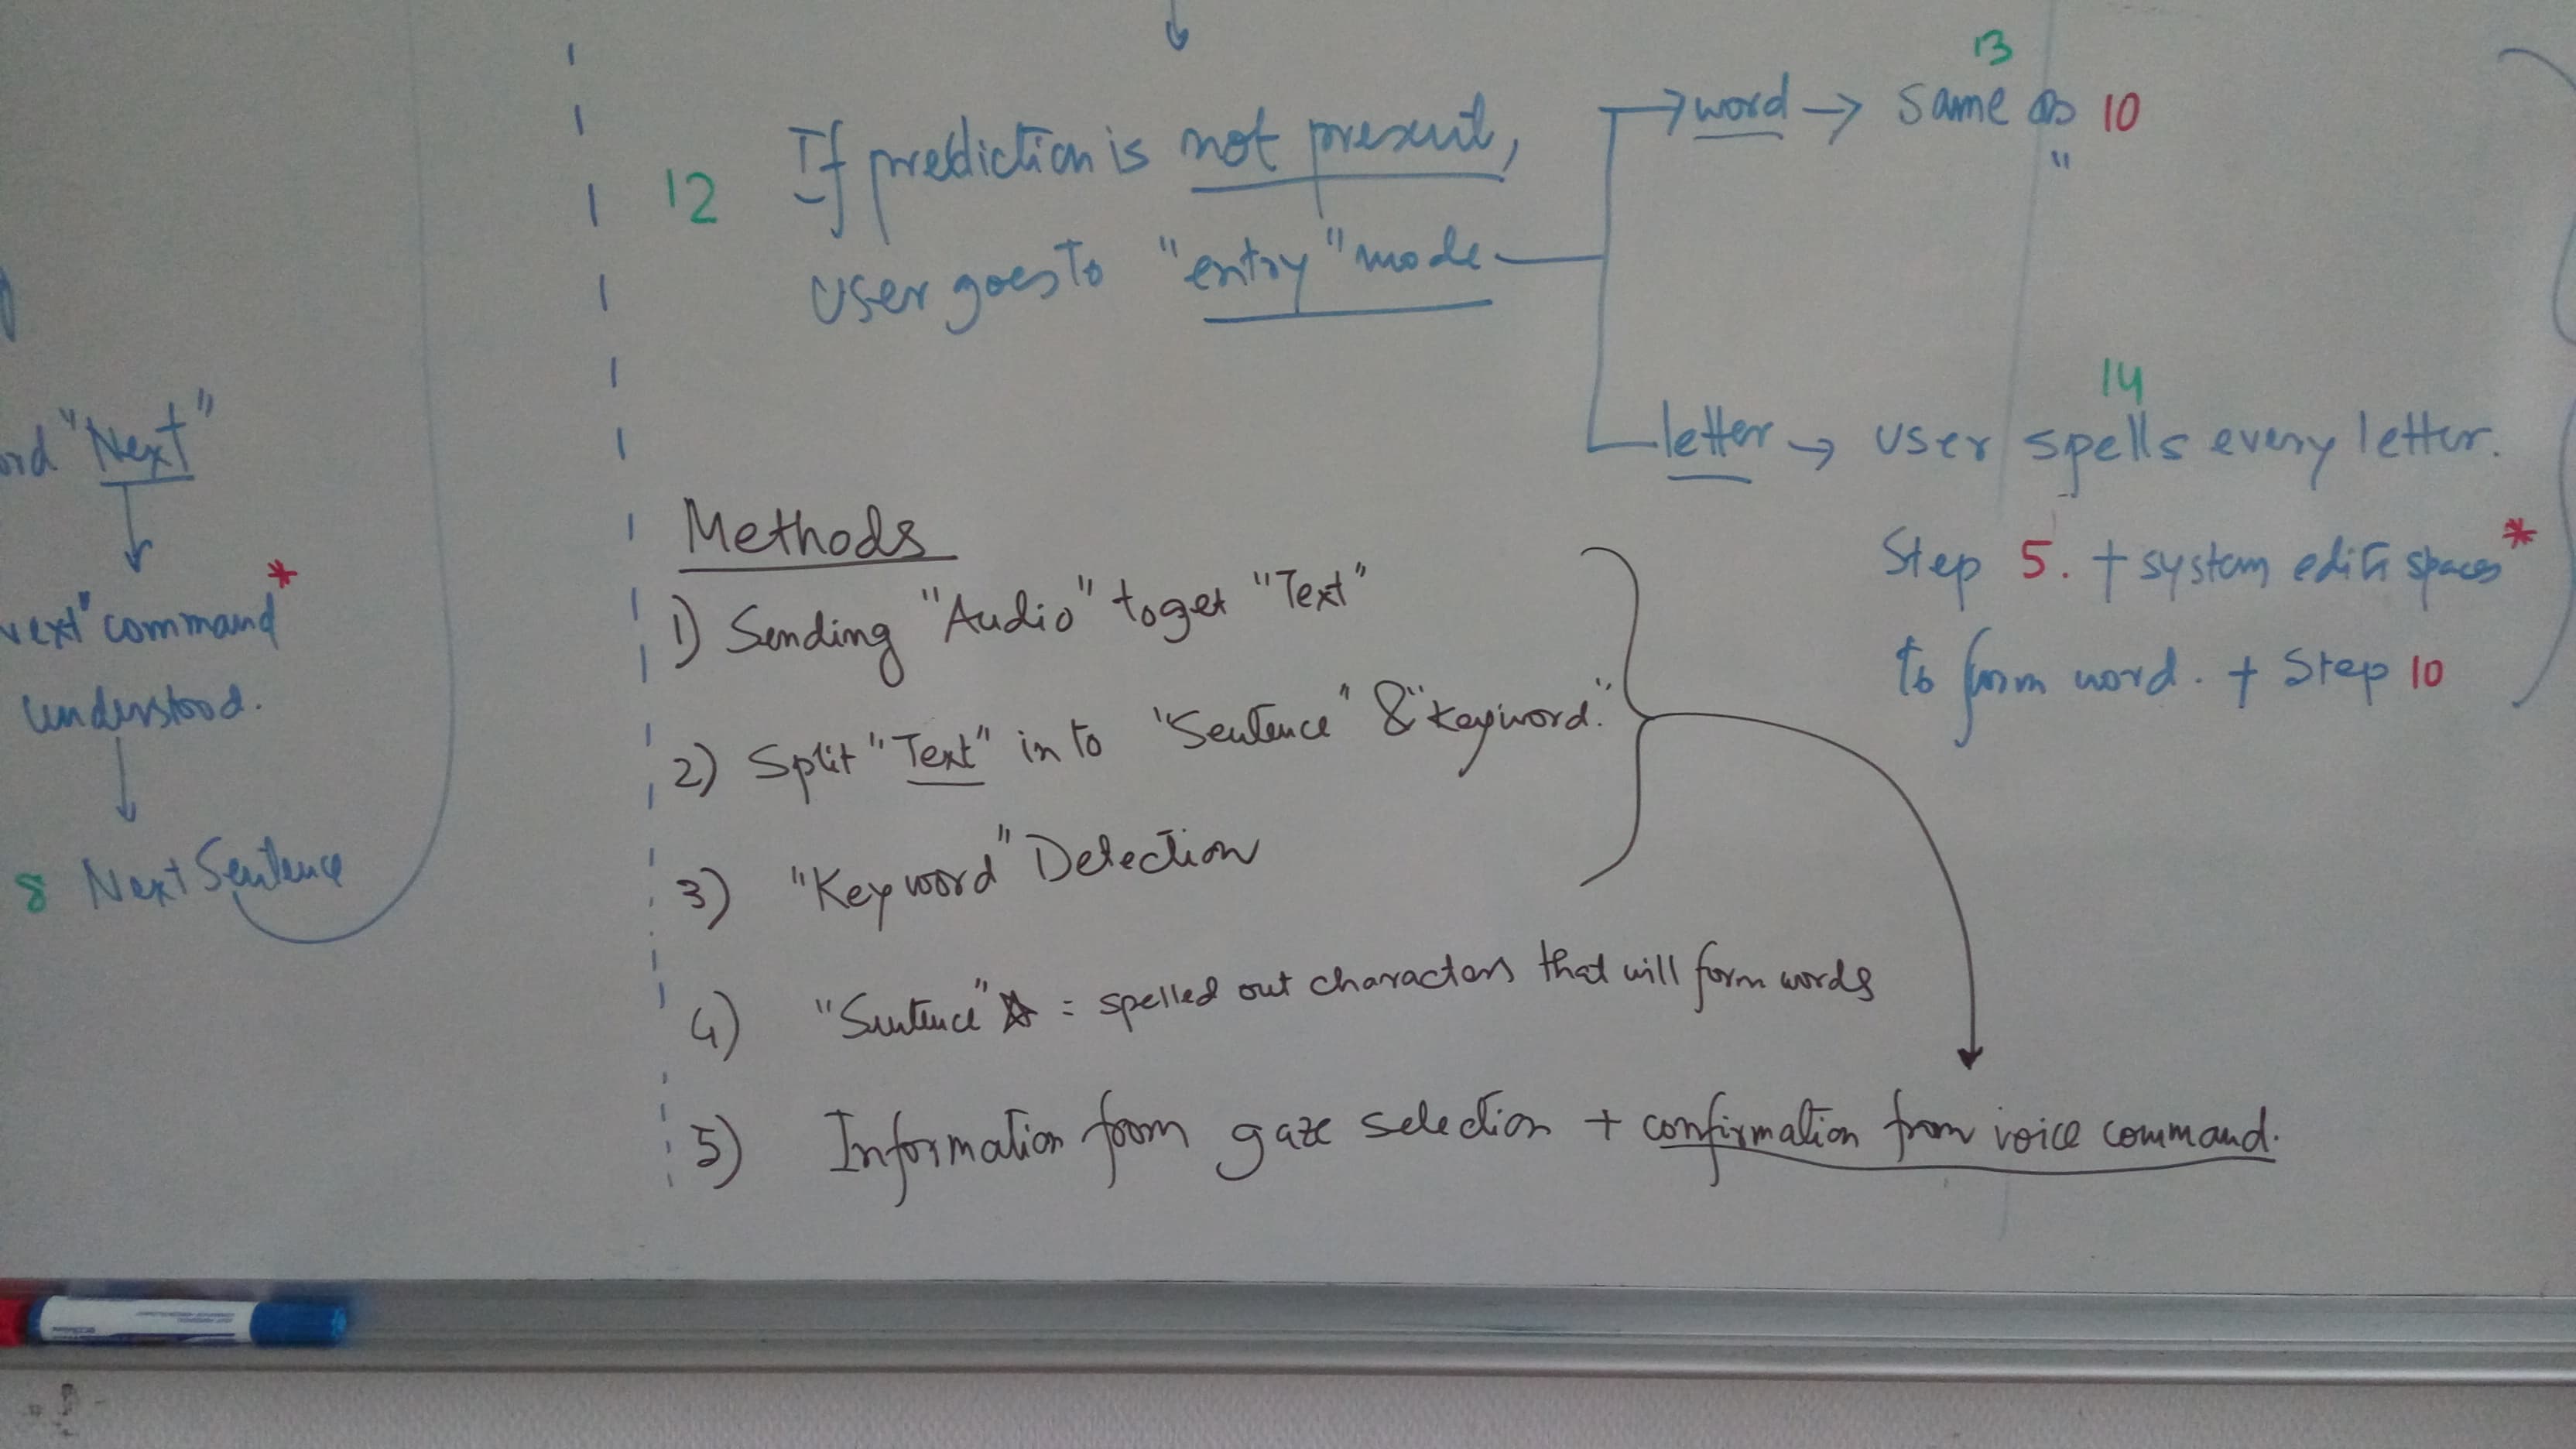 "Next"
Next" command*
understood.
8 Next Sentence
12 If prediction is not present,
user goes to "entry" mode
13
word → same as 10
"
14
letter → user spells every letter.
Step 5. + system edits spaces*
to form word. + Step 10
Methods
1) Sending "Audio" to get "Text"
2) Split "Text" in to "Sentence" & "Keyword."
3) "Keyword" Detection
4) "Sentence" = spelled out characters that will form words
5) Information from gaze selection + confirmation from voice command.